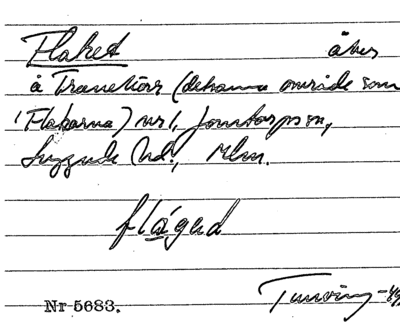 Flaket åker
å Tranekärr (detsamma område som
'Flakarna) nr 1, Jonstorps sn,
Luggude hd., Mlm.
flágəd
Nr 5683.